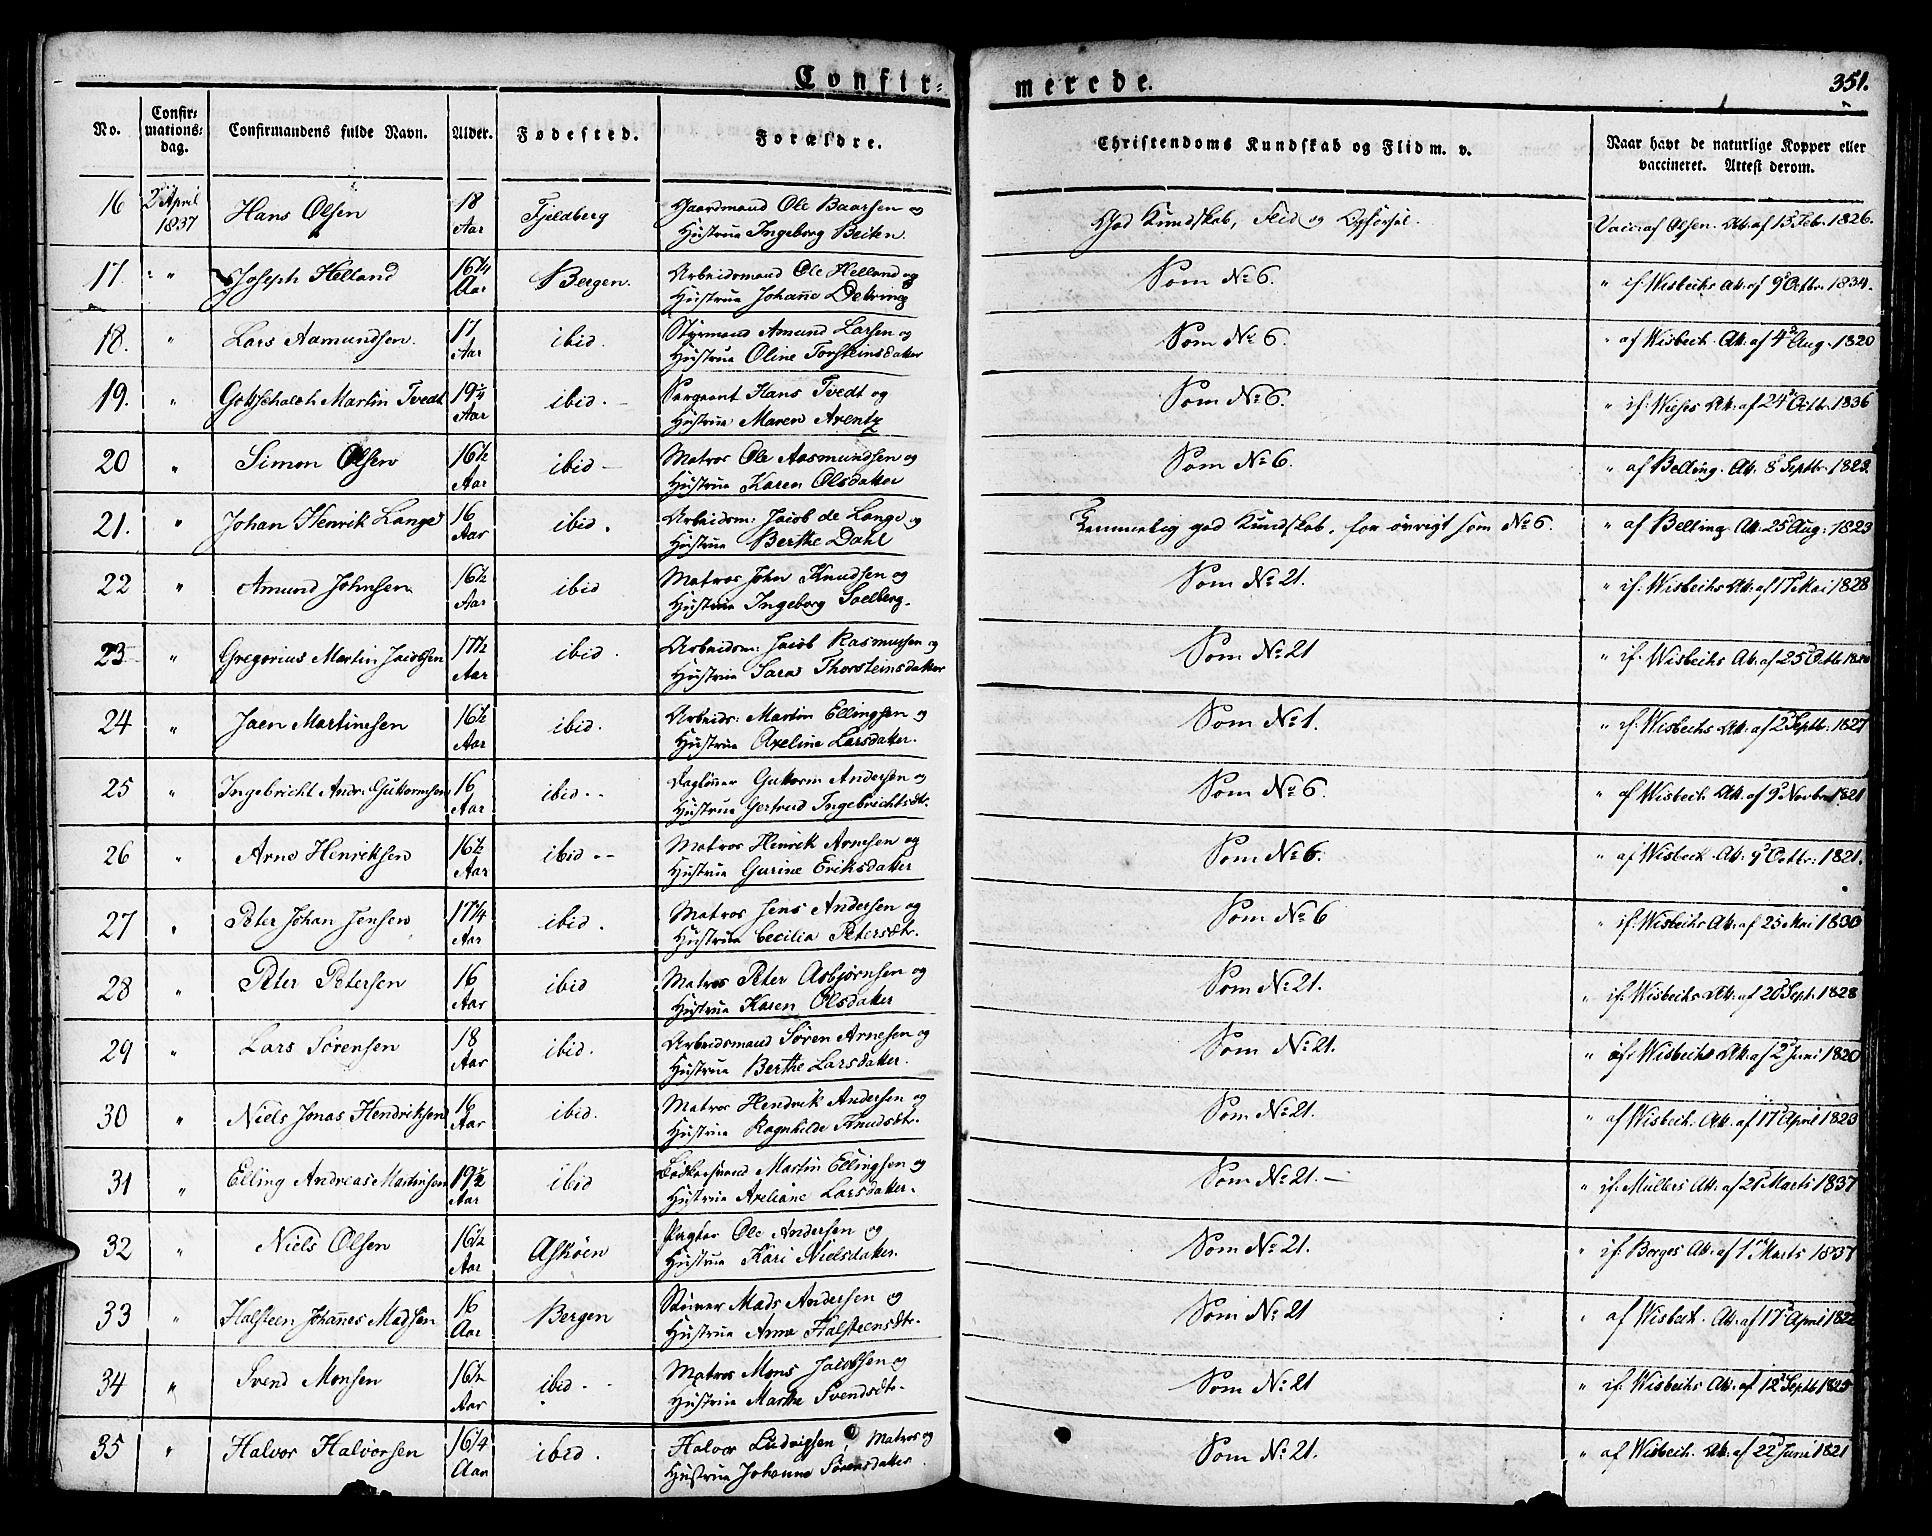 Confir=
merede.
351.
No.
Confir-
mations=
dag.
Confirmandens fulde Navn.
Alder.
Fødested.
Forældre.
Christendoms Kundskab og Flid m. v.
Naar havt de naturlige Kopper eller
vaccineret. Attest derom.
16 2 April 1837 Hans Olsen 18 Aar Fjeldberg Gaardmand Ole Baarsen og Hustrue Ingeborg Beiten. God Kundskab, Flid og Opførsel. Vacc: af Olsen. Att. af 13 Feb. 1826.
17. " Joseph Helland 16 1/4 Aar Bergen. Arbeidsmand Ole Helland og Hustrue Johanne Detring Som No 6. " if. Wisbechs Att. af 9 Octbr. 1834.
18. " Lars Aamundsen. 17 Aar ibid. Styrmand Amund Larsen og Hustrue Oline Torsteinsdatter Som No 6. " af Wisbech. Att. af 4 Aug. 1820
19. " Gottschalch Martin Tvedt 19 1/4 Aar ibid. Sergeant Hans Tvedt og Hustrue Maren Arentz Som No 6. " if. Wieses Att. af 24 Octb. 1836
20 " Simon Olsen 16 1/2 Aar ibid Matros Ole Aasmundsen og Hustrue Karen Olsdatter Som No 6. " af Belling. Att. 8 Septb. 1823.
21. " Johan Henrik Lange 16 Aar ibid. Arbeidsm: Jacob de Lange og Hustrue Berthe Dahl Temmelig god Kundskab, for øvrigt som No 6. " af Belling. Att. 25 Aug. 1823
22 " Amund Johnsen 16 1/2 Aar ibid Matros John Knudsen og Hustrue Ingeborg Soelberg. Som No 21. " if: Wisbechs Att. af 17 Mai 1828
23 " Gregorius Martin Jacobsen 17 1/2 Aar ibid. Arbeidsm: Jacob Rasmussen og Hustrue Sara Thorsteinsdatter Som No 21 " if. Wisbechs Att. af 25 Octb.
24 " Jaen Martinesen 16 1/2 Aar ibid. Arbeids: Martin Ellingsen og Hustrue Axeline Larsdatter. Som No 1. " if. Wisbechs Att. af 2 Septb: 1827
25 " Ingebricht Andr: Guttormsen 16 Aar ibid. Dagløner Guttorm Andersen og Hustrue Gertrud Ingebrichtsdtr. Som No 6. " af Wisbech Att. af 9 Novbr 1821
26 " Arne Henriksen 16 1/2 Aar ibid Matros Henrik Arnesen og Hustrue Gurine Eriksdatter Som No 6. " af Wisbech Att. 9 Octbr: 1821.
27 " Peter Johan Jensen 17 1/4 Aar ibid. Matros Jens Andersen og Hustrue Cecilia Petersdtr. Som No 6 " if. Wisbechs Att. af 25 Mai 1830
28 " Peter Petersen 16 Aar ibid Matros Peter Asbjørnsen og Hustrue Karen Olsdatter Som No 21. " if. Wisbechs Att. af 20 Sept. 1828
29 " Lars Sørensen 18 Aar ibid. Arbeidsmand Søren Arnesen og Hustrue Berthe Larsdatter. Som No 21. " if: Wisbechs Att. af 2 Juni 1820
30 " Niels Jonas Hendriksen 16 Aar ibid. Matros Hendrik Andersen og Hustrue Ragnhilde Knudsdtr. Som No 21. " af Wisbech. Att. af 17 April 1823
31 " Elling Andreas Martinsen 19 1/2 Aar ibid Martin Ellingsen og Hustrue Axeliane Larsdatter. Som No 21. " if. Müllers Att. af 21 Marts 1837
32 " Niels Olsen 16 1/2 Aar Askøen Pagter Ole Andersen og Hustrue Kari Nielsdatter. Som No 21. " if. Borges Att. af 1 Marts 1837
33 " Halsteen Johannes Madsen 16 Aar Bergen Stuver Mads Andersen og Hustrue Anna Halsteensdtr. Som No 21 " af Wisbech. Att. af 17 April 1822
34 " Svend Monsen 16 1/2 Aar ibid. Matros Mons Jacobsen og Hustrue Marthe Svendsdtr. Som No 21 " if. Wisbechs Att. af 12 Septb 1825
35 " Halvor Halvorsen 16 1/4 Aar ibid. Halvor Ludvigsen, Matros og Hustrue Johanne Sørensdatter. Som No 21. " af Wisbech. Att. af 22 Juni 1821